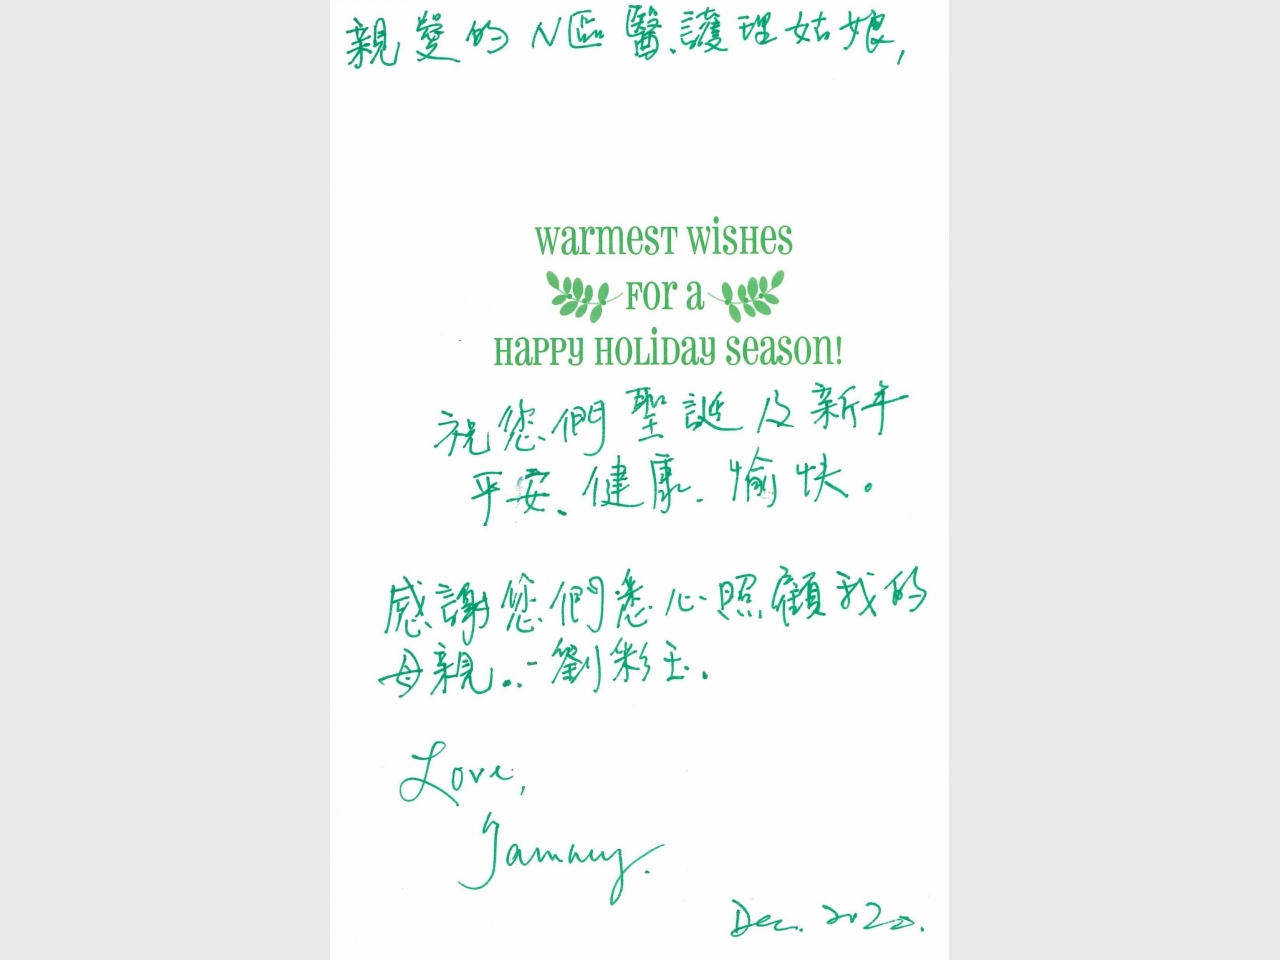 親愛的N區醫護理姑娘,
warmest wishes
for a
Happy Holiday season!
祝您們聖誕及新年
平安、健康、愉快。
感謝您們悉心照顧我的
母親..-劉彩玉.
Love,
Dec. 2020.